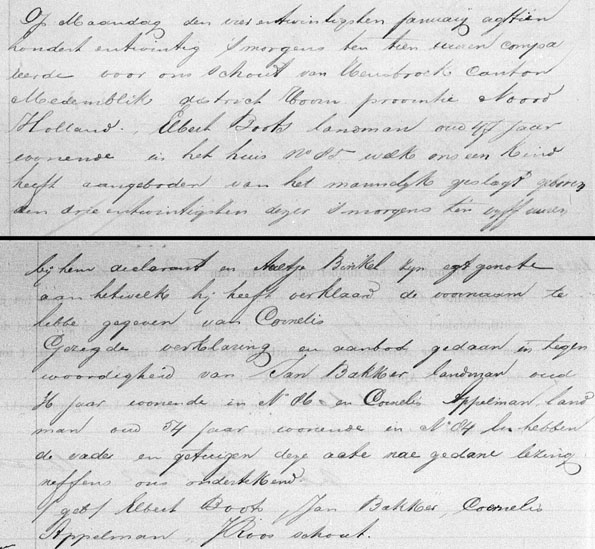 Op Maandag den vier entwintigsten january agttien
hondert entwintig s'morgens ten tien uuren compa
reerde voor ons Schout van Cantor
Medemblik district Hoorn provintie Noord
Holland. Elbert Boots landman oud jaar
woonende in het huis No 85 welk ons een kind
heeft aangeboden van het mannelyk geslagt geboren
den drie entwintigsten dezer s'morgens ten vyff uuren
by hem declarant en Aaltje Binkel zyn egtgenote
aan hetwelk hy heeft verklaard de voornaam te
hebbe gegeven van Cornelis
Gezegde verklaring en aanbod gedaan in tegen
woordigheid van Jan Bakker, landman oud
jaar woonende in No 86 en Cornelis Appelman, land
man oud 54 jaar woonende in No 84 en hebben
de vader en getuigen deze acte nae gedane lezing
neffens ons ondertekend.
get/ Elbert Boots, Jan Bakker, Cornelis
Appelman, Kroos schout.